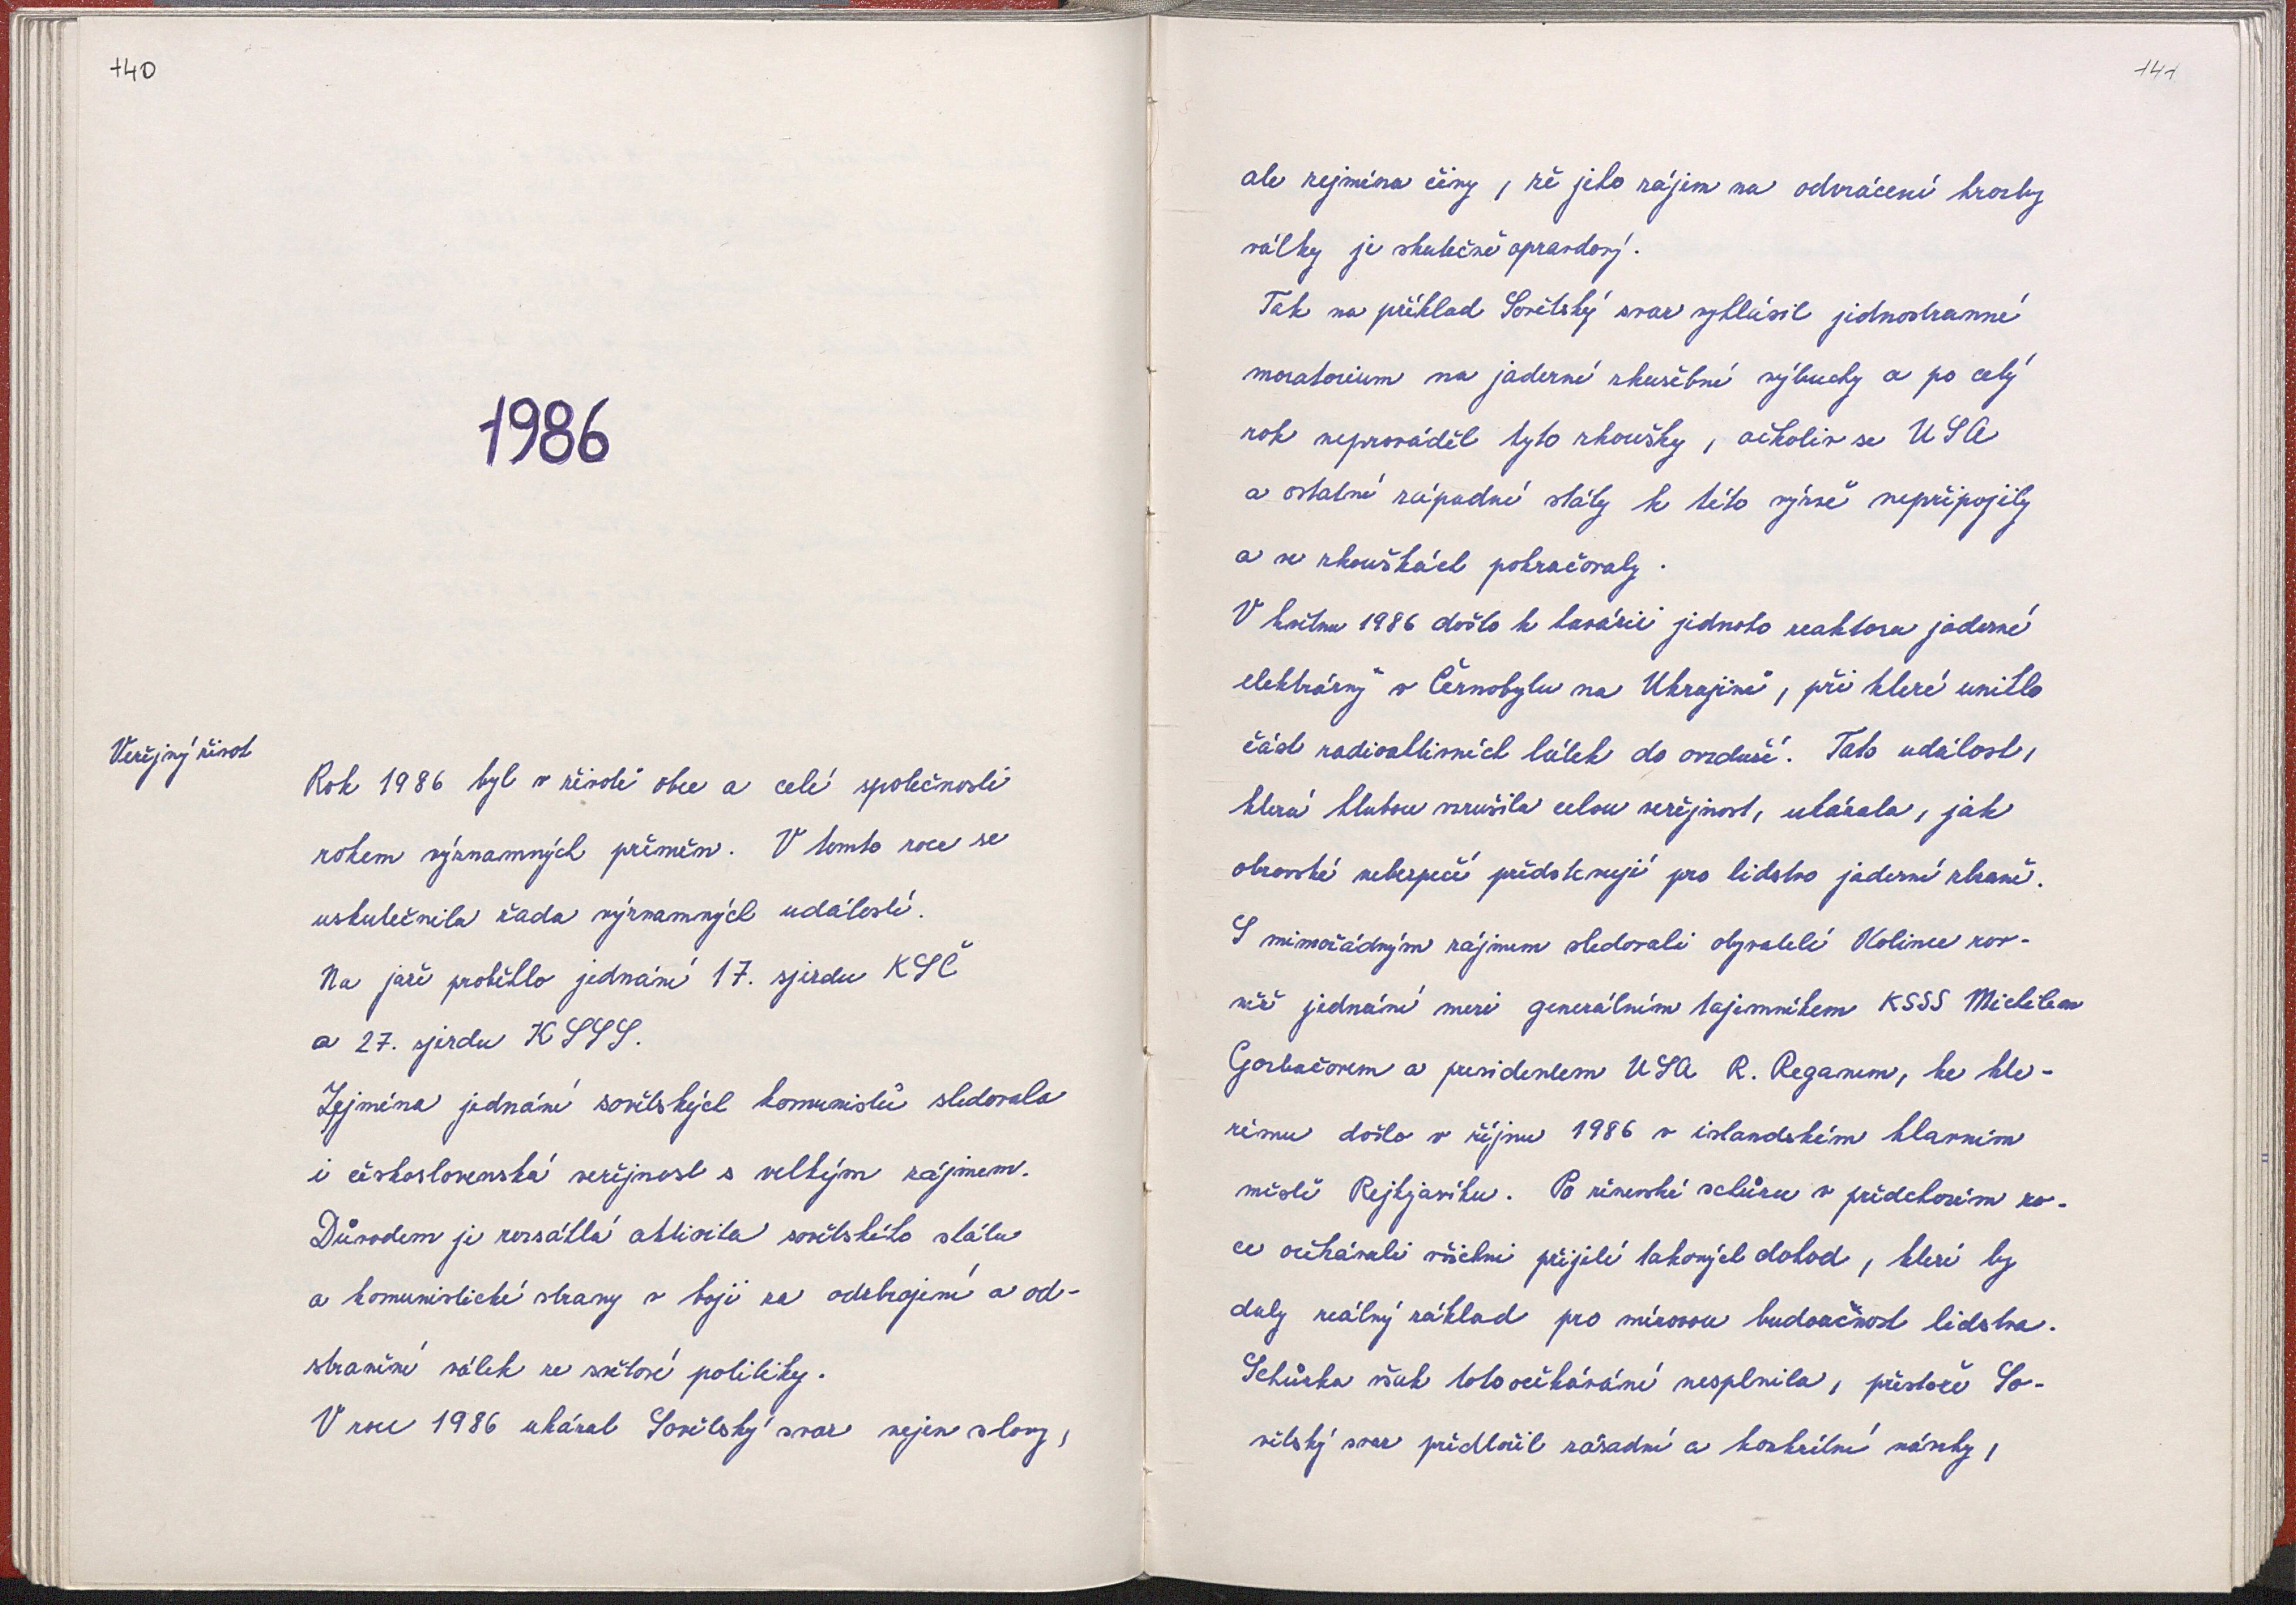 140
1986
Veřejný život
Rok 1986 byl v životě obce a celé společnosti
rokem významných přeměn. V tomto roce se
uskutečnila řada významných událostí.
Na jaře proběhlo jednání 17. sjezdu KSČ
a 27. sjezdu KSSS.
Zejména jednání sovětských komunistů sledovala
i československá veřejnost s velkým zájmem.
Důvodem je rozsáhlá aktivita sovětského státu
a komunistické strany v boji za odzbrojení a od-
stranění válek ze světové politiky.
V roce 1986 ukázal Sovětský svaz nejen slovy,
141
ale zejména činy, že jeho zájem na odvrácení hrozby
války je skutečně opravdový.
Tak na příklad Sovětský svaz vyhlásil jednostranné
moratorium na jaderné zkušební výbuchy a po celý
rok neprováděl tyto zkoušky, ačkoliv se USA
a ostatní západní státy k této výzvě nepřipojily
a ve zkouškách pokračovaly.
V květnu 1986 došlo k havárii jednoho reaktoru jaderné
elektrárny v Černobylu na Ukrajině, při které uniklo
část radioaktivních látek do ovzduší. Tato událost,
která hluboce vzrušila celou veřejnost, ukázala, jak
obrovské nebezpečí představují pro lidstvo jaderné zbraně.
S mimořádným zájmem sledovali obyvatelé Kolince rov-
něž jednání mezi generálním tajemníkem KSSS Michilem
Gorbačovem a presidentem USA R. Reganem, ke kte-
rému došlo v říjnu 1986 v islandském hlavním
městě Rejkjavíku. Po ženevské schůzce v předchozím ro-
ce očekávali všichni přijetí takových dohod, které by
daly reálný základ pro mírovou budoucnost lidstva.
Schůzka však toto očekávání nesplnila, přestože So-
větský svaz předložil zásadní a konkrétní návrhy,